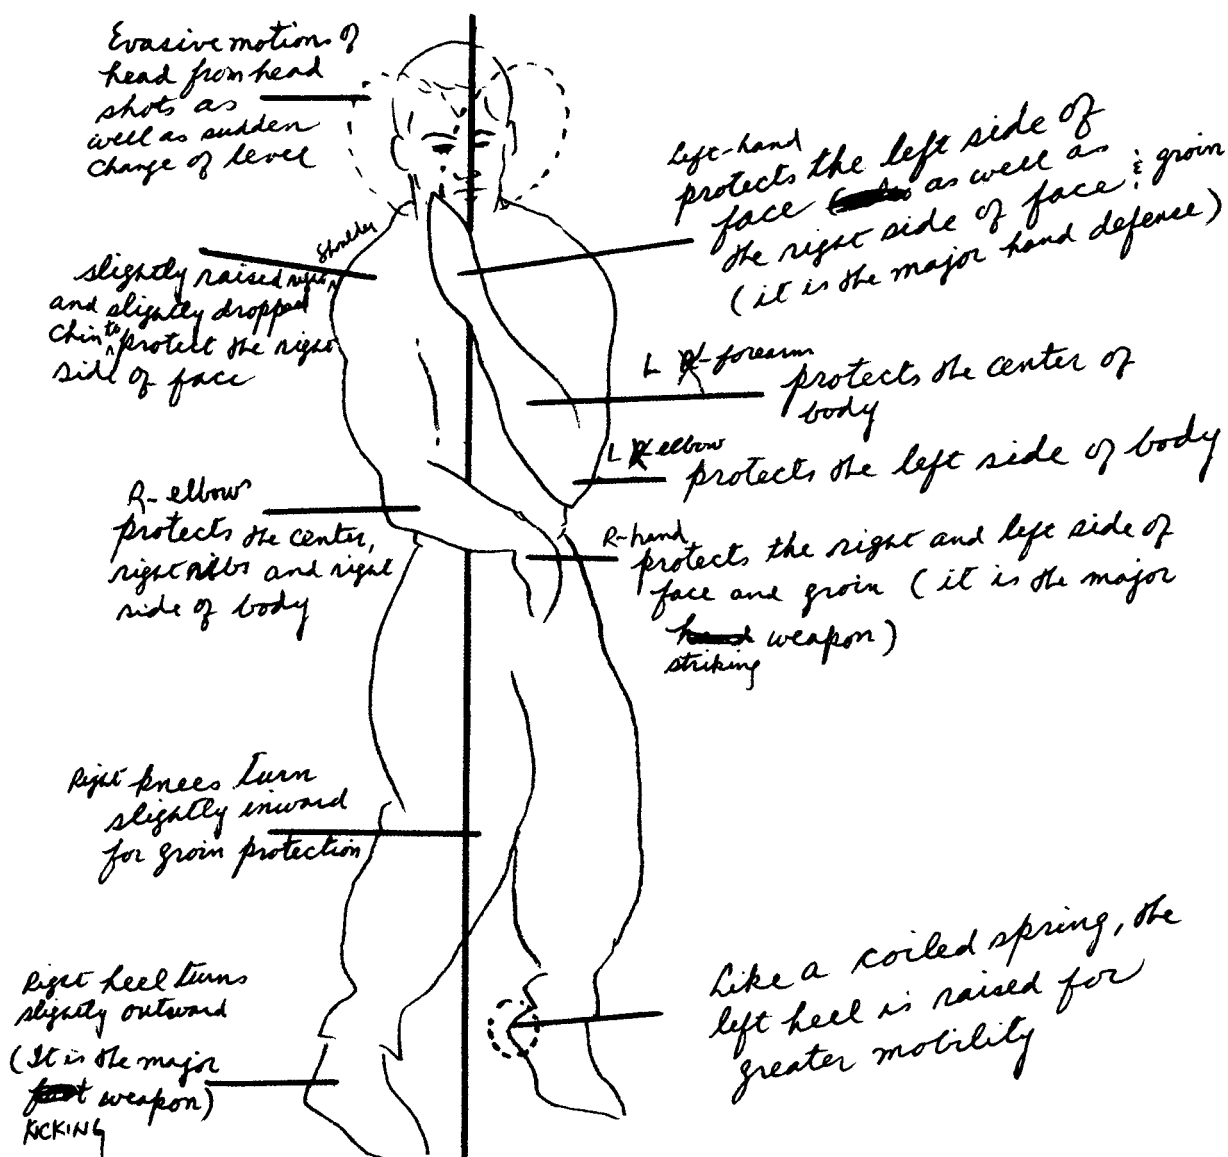 Evasive motions of
head from head
shots as
well as sudden
change of level
shoulder
slightly raised right
and slightly dropped
chin to protect the right
side of face
R- elbow
protects the center,
right ribs and right
side of body
Right knees turn
slightly inward
for groin protection
Right heel turns
slightly outward
(It is the major
foot weapon)
KICKING
Left-hand
protects the left side of
face as well as
the right side of face & groin
(it is the major hand defense)
L R-forearm
protects the center of
body
L R elbow
protects the left side of body
R-hand
protects the right and left side of
face and groin (it is the major
hand weapon)
striking
Like a coiled spring, the
left heel is raised for
greater mobility